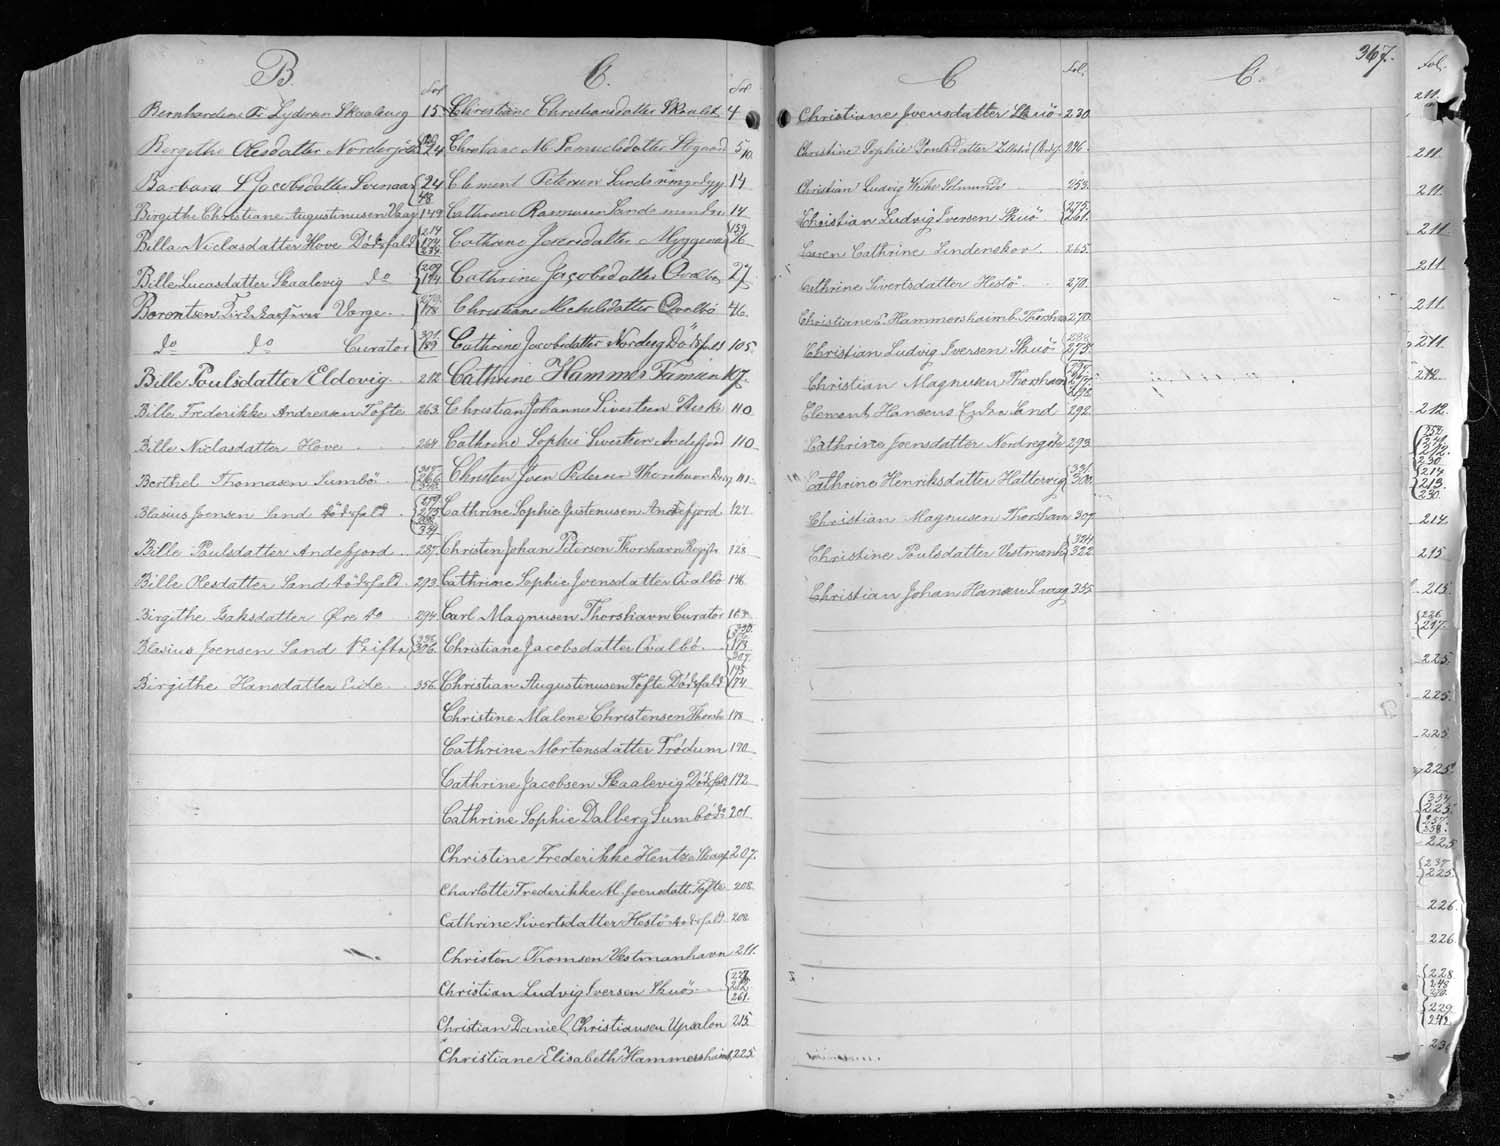 B.
Fol
Bernhardine Fr Lydersen Skaalevig 15
Birgithe Olesdatter 24
Barbara S Jacobsdatter 24
48
Birgithe Christiane Augustinusen 149
Billa Niclasdatter Hove Dödsfald 214
174
234
Bille Lucasdatter Skaalevig do 209
194
Borentsen Vaage 178
do do Curator 301
189
Bille Poulsdatter Eldevig 212
Bille Frederikke Andreasen Tofte 263
Bille Niclasdatter Hove 264
Berthel Thomasen Sumbö 266
Blasius Joensen Sand Dödsfald 279
275
Bille Poulsdatter Andefjord 287
Bille Olesdatter Sand Dödsfald 293
Birgithe Isaksdatter Øre do 294
Blasius Joensen Sand Skifte 306
Birgithe Hansdatter Eide 356
C.
Fol
Christiane Christiansdatter 4
Christiane M Samuelsdatter 5
10
Clement Petersen Sand 14
Cathrine Rasmusen Sand 14
Cathrine Joensdatter Myggenæs 159
16
Cathrine Jacobsdatter Qvalbö 27
Christiane Michelsdatter Qvalbö 46
Cathrine Jacobsdatter Nordrg Dödsfald 105
Cathrine Hammer Famien 107
Christian Johannes Sivertsen 110
Cathrine Sophie Sivertsen Andefjord 110
Christen Joen Petersen Thorshavn 111
Cathrine Sophie Justenusen Andefjord 127
Christen Johan Petersen Thorshavn 128
Cathrine Sophie Joensdatter Qvalbö 148
Carl Magnusen Thorshavn Curator 163
Christiane Jacobsdatter Qvalbö 330
173
307
Christian Augustinusen Tofte Dödsfald 195
174
Christine Malene Christensen Thorsh 178
Cathrine Mortensdatter Frodum 190
Cathrine Jacobsen Skaalevig Dödsfald 192
Cathrine Sophie Dalberg Sumbö do 201
Christine Frederikke Hentze 207
Charlotte Frederikke M. Joensdatt. Tofte 208
Cathrine Sivertsdatter Hestö Dödsfald 208
Christen Thomsen Vestmanhavn 211
Christian Ludvig Iversen Skuö 227
262
261
Christian Daniel Christiansen Upsalon 215
Christiane Elisabeth Hammershaimb 225
C
Fol.
Christiane Joensdatter Skuö 230
Christine Sophie Poulsdatter 246
Christian Ludvig Weihe Selmunds 253
Christian Ludvig Iversen Skuö 275
261
Caren Cathrine Lindenskov 265
Cathrine Sivertsdatter Hestö 270
Christiane E. Hammershaimb Thorshavn 270
Christian Ludvig Iversen Skuö 275
Christian Magnusen Thorshavn 277
Clement Hansens Enke Sand 292
Cathrine Joensdatter Nordregöte 293
Cathrine Henriksdatter Hattervig 331
300
Christian Magnusen Thorshavn 307
Christine Poulsdatter Vestmanh 324
322
Christian Johan Hansen 355
C.
367.
Fol.
211
211
211
211
211
211
211
212
212
212
230
214
213
230
214
215
215
217
225
225
225
225
354
225
257
358
225
237
225
226
226
228
248
229
242